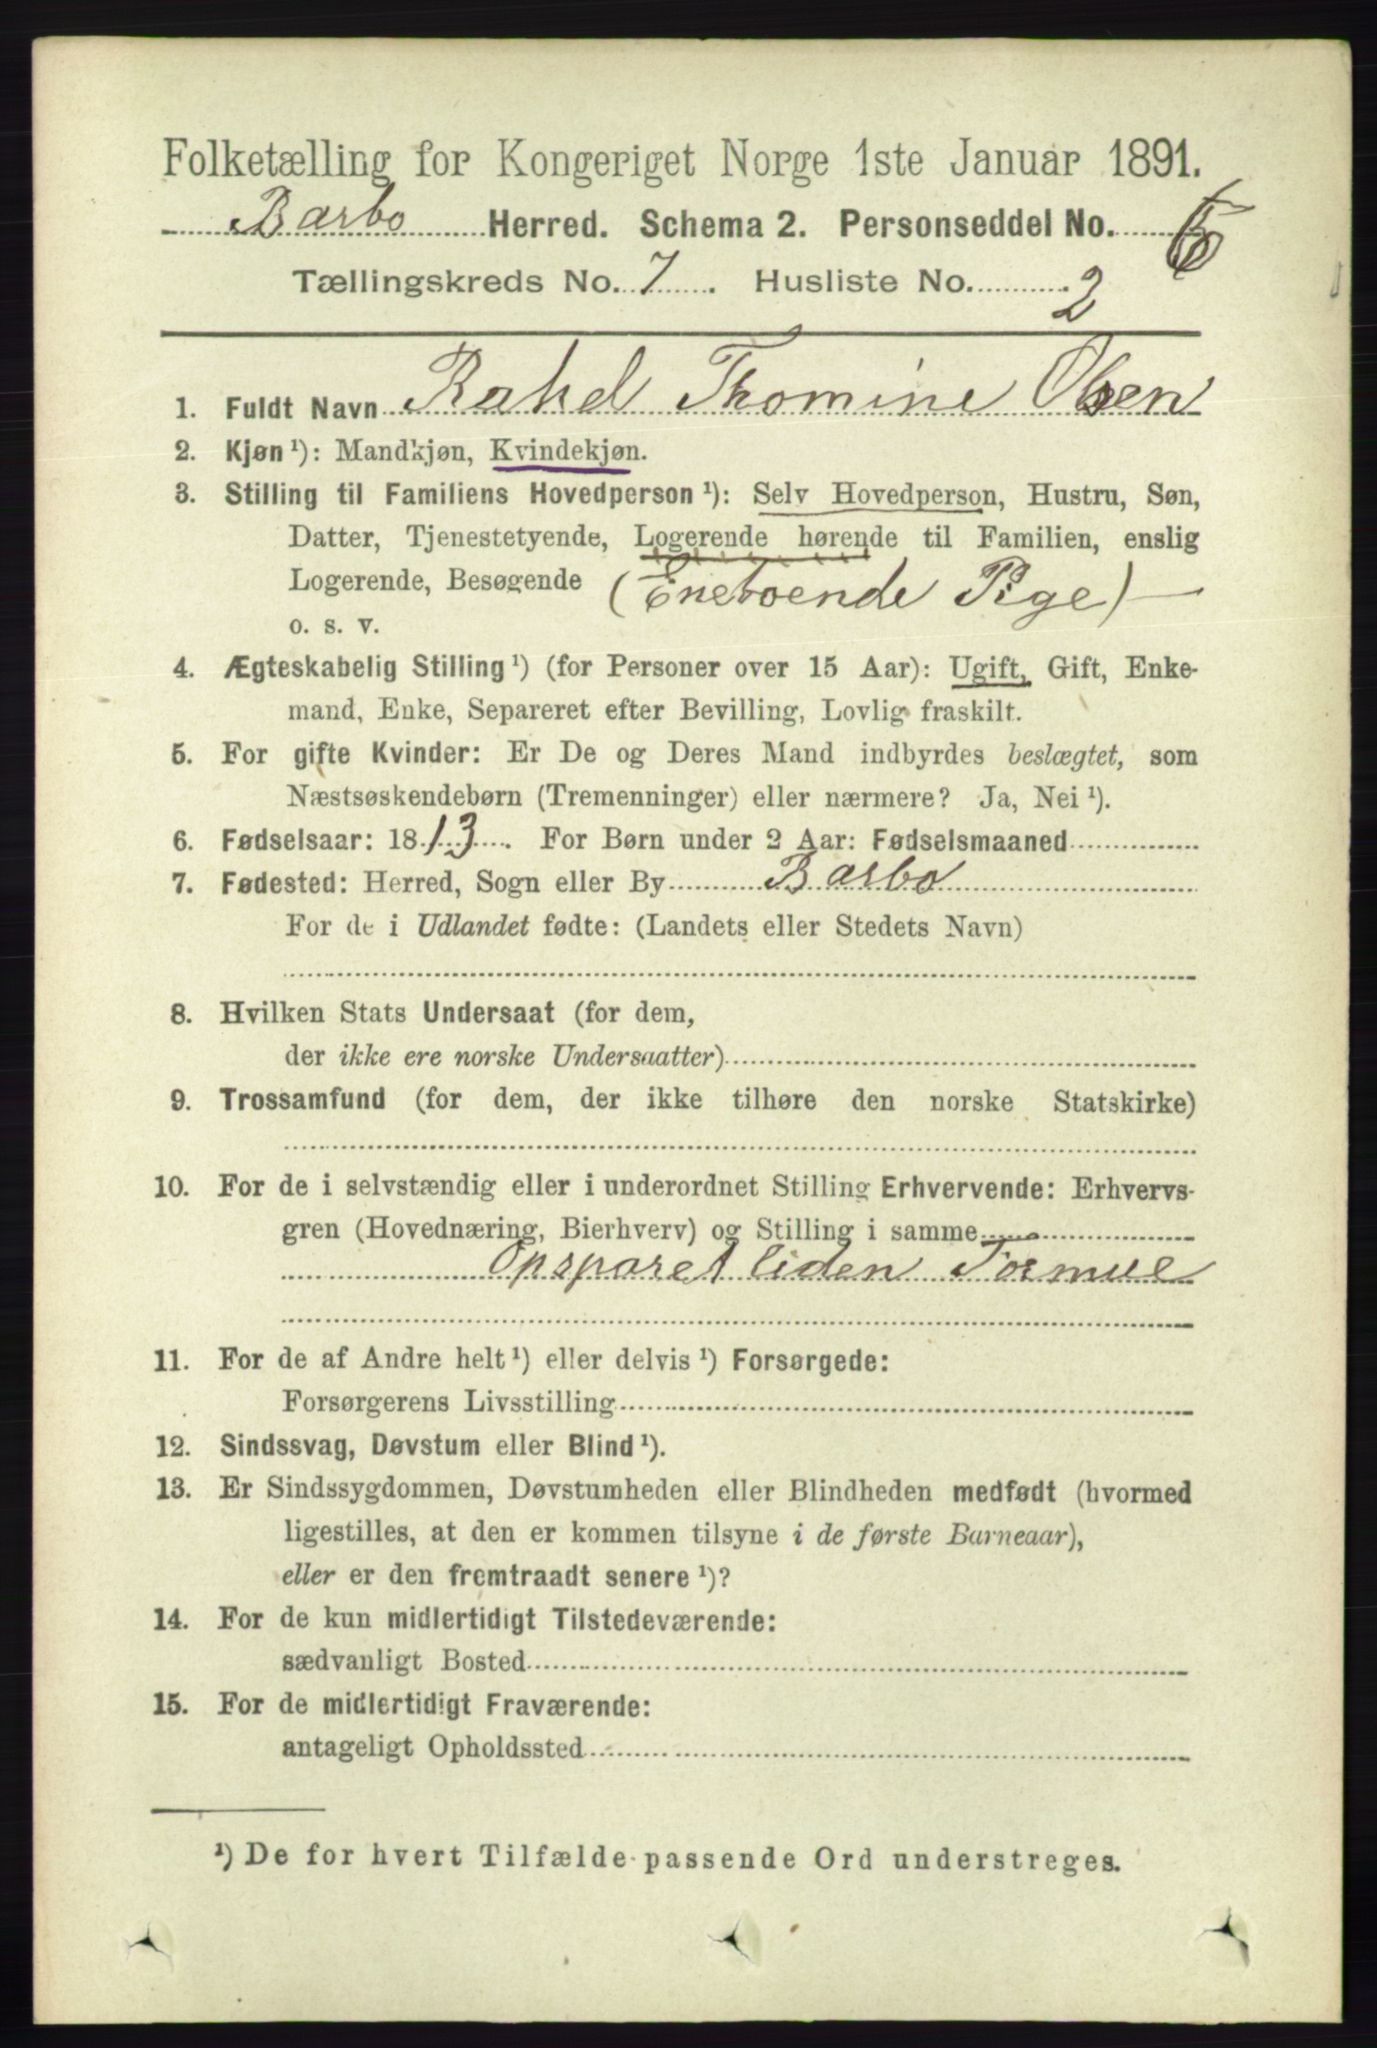 Folketælling for Kongeriget Norge 1ste Januar 1891.
Barbo Herred. Schema 2. Personseddel No. 6
Tællingskreds No. 7. Husliste No. 2
1. Fuldt Navn Rahel Thomine Olsen
2. Kjøn ¹): Mandkjøn, Kvindekjøn.
3. Stilling til Familiens Hovedperson ¹): Selv Hovedperson, Hustru, Søn,
Datter, Tjenestetyende, Logerende hørende til Familien, enslig
Logerende, Besøgende (Eneboende Pige)
o. s. v.
4. Ægteskabelig Stilling ¹) (for Personer over 15 Aar): Ugift, Gift, Enke-
mand, Enke, Separeret efter Bevilling, Lovlig fraskilt.
5. For gifte Kvinder: Er De og Deres Mand indbyrdes beslægtet, som
Næstsøskendebørn (Tremenninger) eller nærmere? Ja, Nei ¹).
6. Fødselsaar: 1813. For Børn under 2 Aar: Fødselsmaaned
7. Fødested: Herred, Sogn eller By Barbo
For de i Udlandet fødte: (Landets eller Stedets Navn)
8. Hvilken Stats Undersaat (for dem,
der ikke ere norske Undersaatter)
9. Trossamfund (for dem, der ikke tilhøre den norske Statskirke)
10. For de i selvstændig eller i underordnet Stilling Erhvervende: Erhvervs-
gren (Hovednæring, Bierhverv) og Stilling i samme
Opsparet liden Formue
11. For de af Andre helt ¹) eller delvis ¹) Forsørgede:
Forsørgerens Livsstilling
12. Sindssvag, Døvstum eller Blind ¹).
13. Er Sindssygdommen, Døvstumheden eller Blindheden medfødt (hvormed
ligestilles, at den er kommen tilsyne i de første Barneaar),
eller er den fremtraadt senere ¹)?
14. For de kun midlertidigt Tilstedeværende:
sædvanligt Bosted
15. For de midlertidigt Fraværende:
antageligt Opholdssted
¹) De for hvert Tilfælde passende Ord understreges.